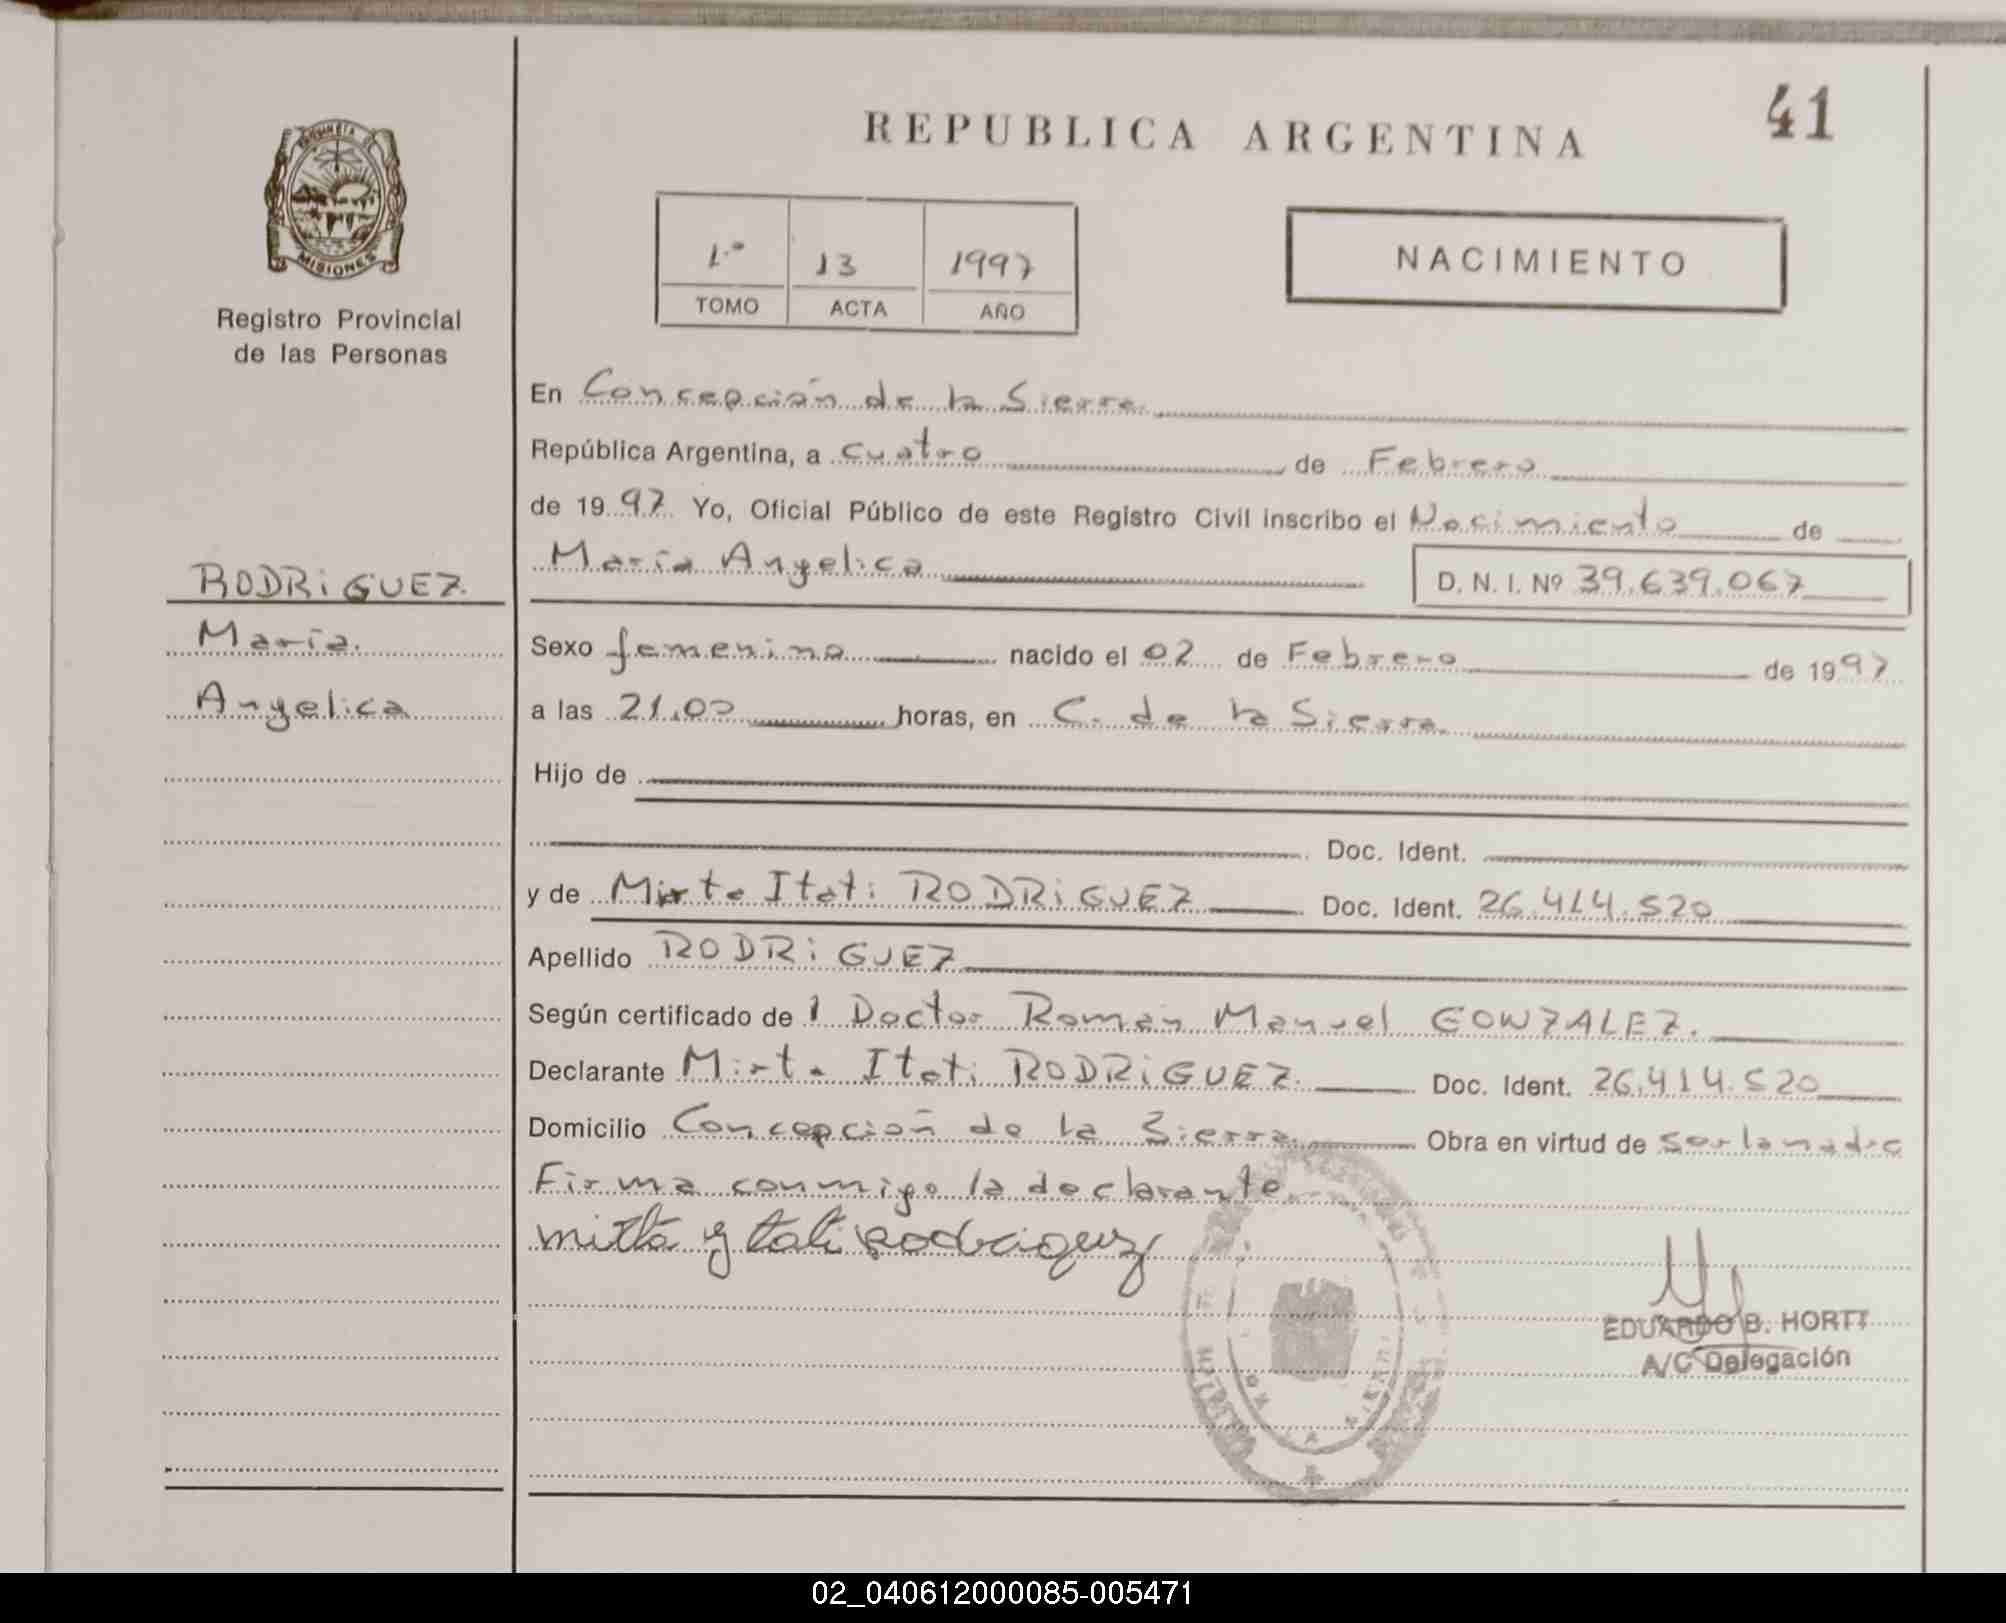 REPUBLICA ARGENTINA
41
MISIONES
Registro Provincial
de las Personas
1.º 13 1997
TOMO ACTA AÑO
NACIMIENTO
En Concepción de la Sierra
República Argentina, a cuatro de Febrero
de 1997 Yo, Oficial Público de este Registro Civil inscribo el Nacimiento de
María Angelica D. N. I. Nº 39.639.067
RODRiGUEZ
María
Angelica
Sexo femenino nacido el 02 de Febrero de 1997
a las 21.00 horas, en C. de la Sierra
Hijo de
Doc. Ident.
y de Mirta Itati RODRiGUEZ Doc. Ident. 26.414.520
Apellido RODRiGUEZ
Según certificado de l Doctor Román Manuel GONZALEZ.
Declarante Mirta Itati RODRiGUEZ Doc. Ident. 26.414.520
Domicilio Concepción de la Sierra Obra en virtud de ser la madre
Firma conmigo la declarante
mirta ytati Rodriguez
EDUARDO B. HORTT
A/C Delegación
02_040612000085-005471